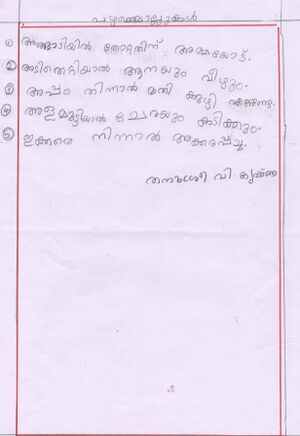 പഴഞ്ചൊല്ലുകൾ
① അങ്ങാടിയിൽ തോറ്റതിന് അമ്മയോട്.
② അടിതെറ്റിയാൽ ആനയും വീഴും.
③ അപ്പം തിന്നാൽ മതി കുഴി എണ്ണണ്ട.
④ അളമുട്ടിയാൽ ചേരയും കടിക്കും.
⑤ ഇക്കരെ നിന്നാൽ അക്കരപ്പച്ച.
വി. കൃഷ്ണ